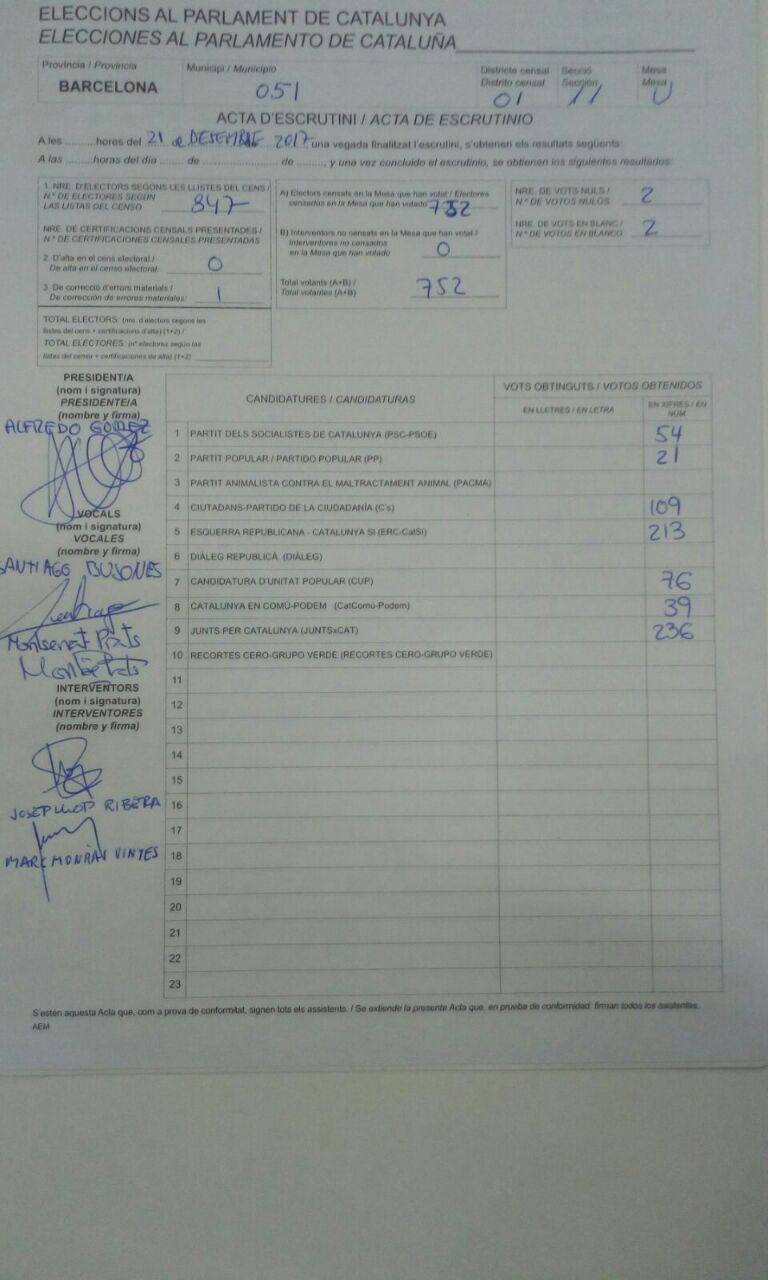 ELECCIONS AL PARLAMENT DE CATALUNYA
ELECCIONES AL PARLAMENTO DE CATALUÑA
Província / Provincia
BARCELONA
Municipi / Municipio
051
Districte censal
Distrito censal
01
Secció
Sección
11
Mesa
Mesa
U
ACTA D'ESCRUTINI / ACTA DE ESCRUTINIO
A les ..........hores del 21 de DESEMBRE 2017 una vegada finalitzat l'escrutini, s'obtenen els resultats següents:
A las ..........horas del día ....... de ........................... de ........., y una vez concluido el escrutinio, se obtienen los siguientes resultados:
1. NRE. D'ELECTORS SEGONS LES LLISTES DEL CENS /
N.º DE ELECTORES SEGÚN
LAS LISTAS DEL CENSO 847
NRE. DE CERTIFICACIONS CENSALS PRESENTADES /
N.º DE CERTIFICACIONES CENSALES PRESENTADAS
2. D'alta en el cens electoral /
De alta en el censo electoral 0
3. De correcció d'errors materials /
De corrección de errores materiales: 1
TOTAL ELECTORS: (nre. d'electors segons les
llistes del cens + certificacions d'alta) (1+2) /
TOTAL ELECTORES: (nº electores según las
listas del censo + certificaciones de alta) (1+2)
A) Electors censats en la Mesa que han votat / Electores
censados en la Mesa que han votado 752
B) Interventors no censats en la Mesa que han votat /
Interventores no censados
en la Mesa que han votado 0
Total votants (A+B) /
Total votantes (A+B) 752
NRE. DE VOTS NULS /
N.º DE VOTOS NULOS 2
NRE. DE VOTS EN BLANC /
N.º DE VOTOS EN BLANCO 2
PRESIDENT/A
(nom i signatura)
PRESIDENTE/A
(nombre y firma)
ALFREDO GOMEZ
VOCALS
(nom i signatura)
VOCALES
(nombre y firma)
SANTIAGO BUSONES
Montserrat Prats
INTERVENTORS
(nom i signatura)
INTERVENTORES
(nombre y firma)
JOSEP LLOP RIBERA
MARC VINYES
CANDIDATURES / CANDIDATURAS
VOTS OBTINGUTS / VOTOS OBTENIDOS
EN LLETRES / EN LETRA
EN XIFRES / EN
NÚM
1 PARTIT DELS SOCIALISTES DE CATALUNYA (PSC-PSOE) 54
2 PARTIT POPULAR / PARTIDO POPULAR (PP) 21
3 PARTIT ANIMALISTA CONTRA EL MALTRACTAMENT ANIMAL (PACMA)
4 CIUTADANS-PARTIDO DE LA CIUDADANÍA (C's) 109
5 ESQUERRA REPUBLICANA - CATALUNYA SÍ (ERC-CatSí) 213
6 DIÀLEG REPUBLICÀ (DIÀLEG)
7 CANDIDATURA D'UNITAT POPULAR (CUP) 76
8 CATALUNYA EN COMÚ-PODEM (CatComú-Podem) 39
9 JUNTS PER CATALUNYA (JUNTSxCAT) 236
10 RECORTES CERO-GRUPO VERDE (RECORTES CERO-GRUPO VERDE)
11
12
13
14
15
16
17
18
19
20
21
22
23
S'estén aquesta Acta que, com a prova de conformitat, signen tots els assistents. / Se extiende la presente Acta que, en prueba de conformidad, firman todos los asistentes.
AEM